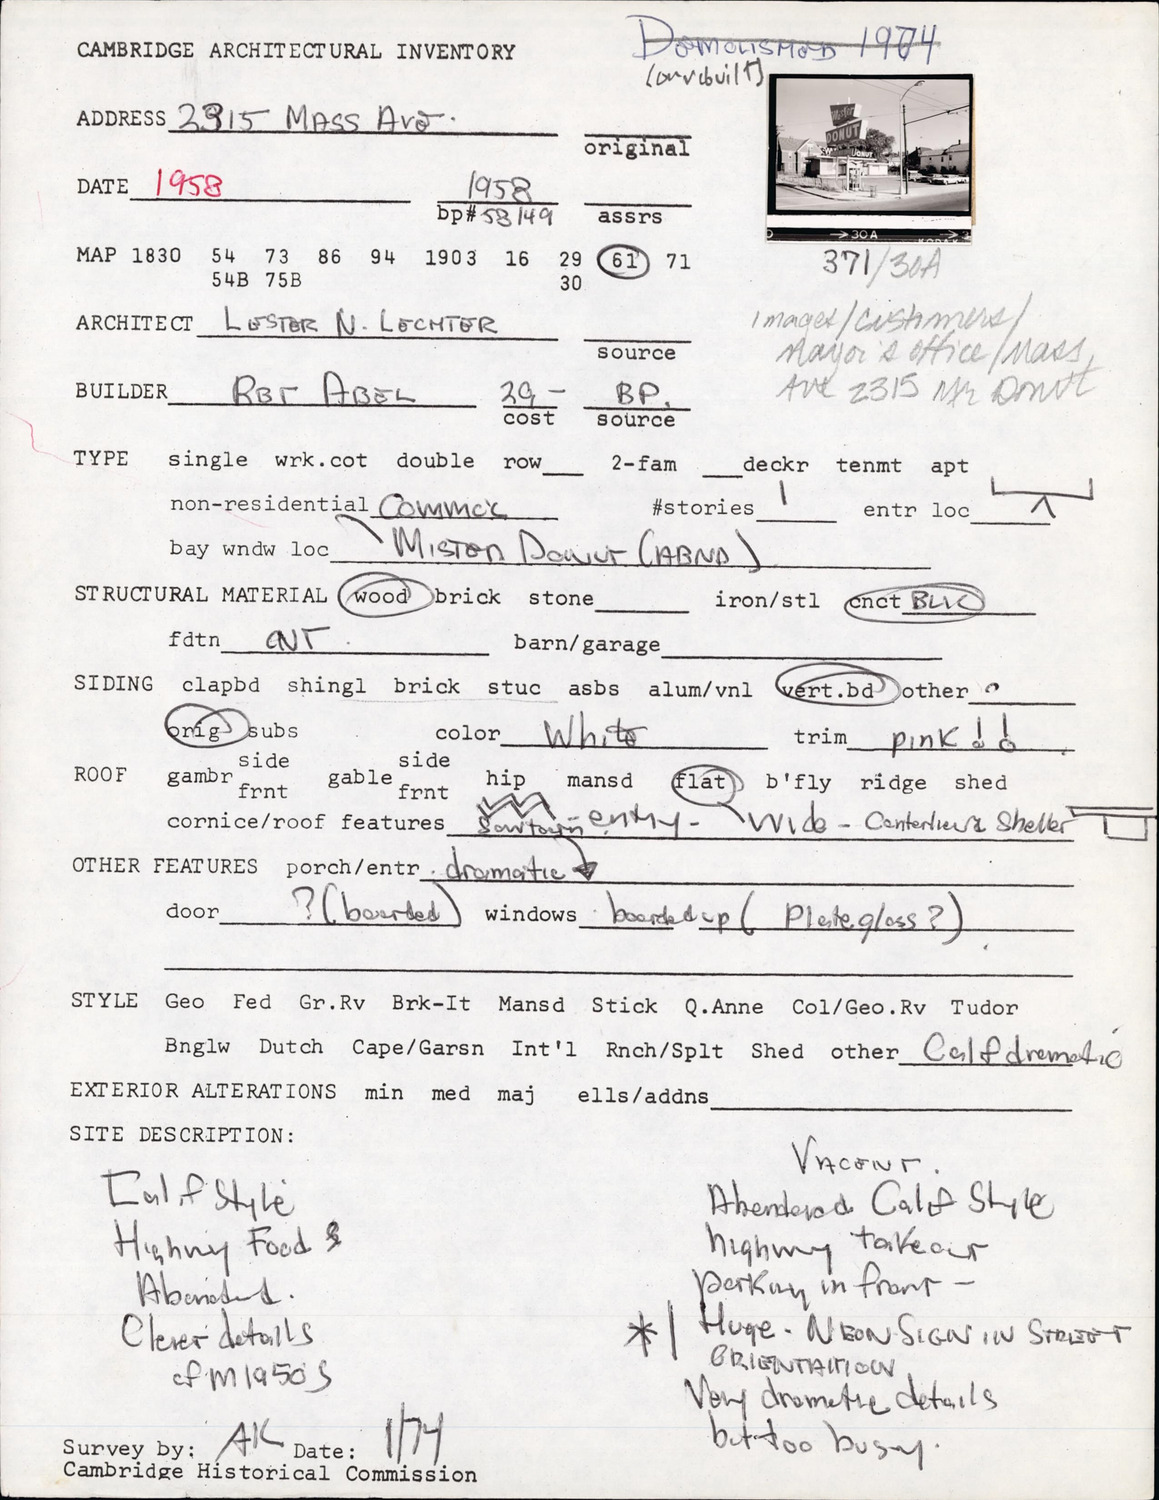 CAMBRIDGE ARCHITECTURAL INVENTORY
DEMOLISHED 1974
(or rebuilt)
ADDRESS 2315 MASS AVE.
original
DATE 1958 1958
bp# 58149 assrs
MISTER
DONUT
DONUT
→30A KODAK
371/30A
MAP 1830 54 73 86 94 1903 16 29 61 71
54B 75B 30
ARCHITECT LESTER N. LECHTER
source
Images/Cushmers/
Mayor's office/Mass
Ave 2315 Mr Donut
BUILDER RBT ABEL 29- BP.
cost source
TYPE single wrk.cot double row 2-fam deckr tenmt apt
non-residential Commcl #stories 1 entr loc
bay wndw loc MISTER DONUT (ABND)
STRUCTURAL MATERIAL wood brick stone iron/stl cnct BLK
fdtn CNT barn/garage
SIDING clapbd shingl brick stuc asbs alum/vnl vert.bd other
orig subs color White trim pink!!
ROOF gambr side frnt gable side frnt hip mansd flat b'fly ridge shed
cornice/roof features Sawtooth entry - Wide - Canterlievrd Shelter
OTHER FEATURES porch/entr. dramatic
door ? (boarded) windows boarded up (Plate glass?)
STYLE Geo Fed Gr.Rv Brk-It Mansd Stick Q.Anne Col/Geo.Rv Tudor
Bnglw Dutch Cape/Garsn Int'l Rnch/Splt Shed other Calf dramatic
EXTERIOR ALTERATIONS min med maj ells/addns
SITE DESCRIPTION:
Calif Style
Highway Food &
Abandond.
Clever details
of M1950s
VACENT.
Abendoned Calif Style
highway takeout
parking in front -
* | Huge - NEON SIGN IN STREET
ORIENTATION
Very dramatic details
but too busy.
Survey by: AK Date: 1/74
Cambridge Historical Commission